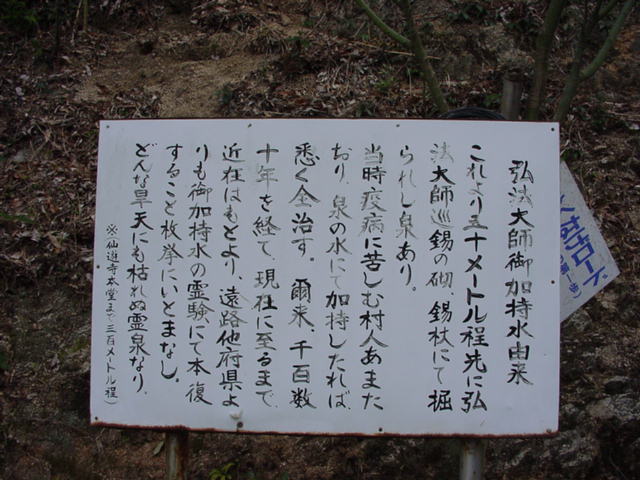 弘法大師御加持水由来
これより五十メートル程先に弘
法大師巡錫の砌、錫杖にて掘
られし泉あり。
当時疫病に苦しむ村人あまた
おり、泉の水にて加持したれば、
悉く全治す。爾来、千百数
十年を経て、現在に至るまで、
近在はもとより、遠路他府県よ
りも御加持水の霊験にて本復
すること枚挙にいとまなし。
どんな旱天にも枯れぬ霊泉なり。
※(仙遊寺本堂まで三百メートル程)